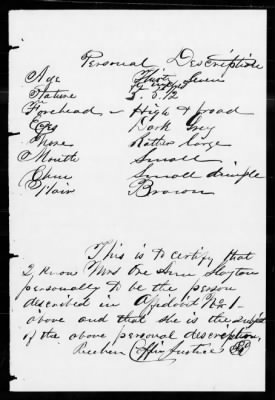 Personal Description
Age Thirty Seven
Stature 5.
Forehead – High & broad
Eyes Dark Grey
Nose Rather Large
Mouth Small
Chin Small dimple
Hair Brown
This is to Certify that
I know Mrs Ann Slayton
personally to be the person
described in Affidavit No 1
above and that she is the subject
of the above personal description,
Reuben Justice